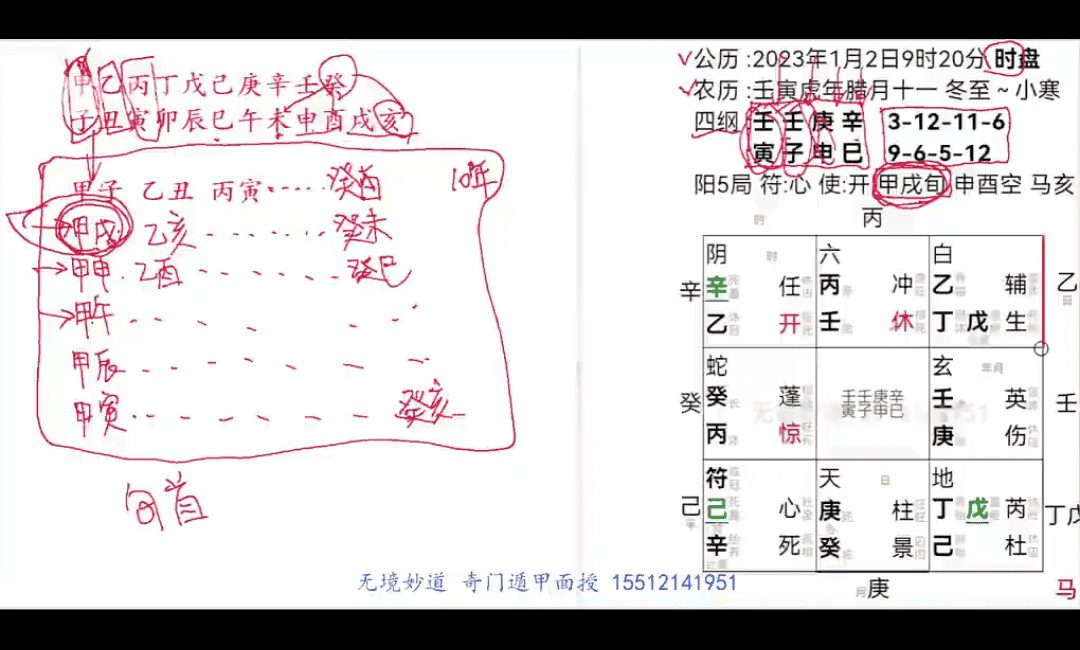 甲乙丙丁戊己庚辛壬癸
子丑寅卯辰巳午未申酉戌亥
甲子 乙丑 丙寅····· 癸酉 10年
甲戌 乙亥 ······· 癸未
甲申 · 乙酉 ······ 癸巳
甲午
甲辰
甲寅 ······ 癸亥
旬首
公历 :2023年1月2日9时20分 时盘
农历 :壬寅虎年腊月十一 冬至~小寒
四纲 壬 壬 庚 辛 3-12-11-6
寅 子 申 巳 9-6-5-12
阳5局 符:心 使:开 甲戌旬 申酉空 马亥
丙
阴 时 六 白
辛 辛 任 丙 冲 乙 辅 乙
乙 开 壬 休 丁 戊 生
蛇 玄 年月
癸 癸 蓬 壬壬庚辛 壬 英 壬
丙 惊 寅子申巳 庚 伤
符 天 日 地
己 己 心 庚 柱 丁 戊 芮 丁戊
辛 死 癸 景 己 杜
庚 马
无境妙道 奇门遁甲面授 15512141951